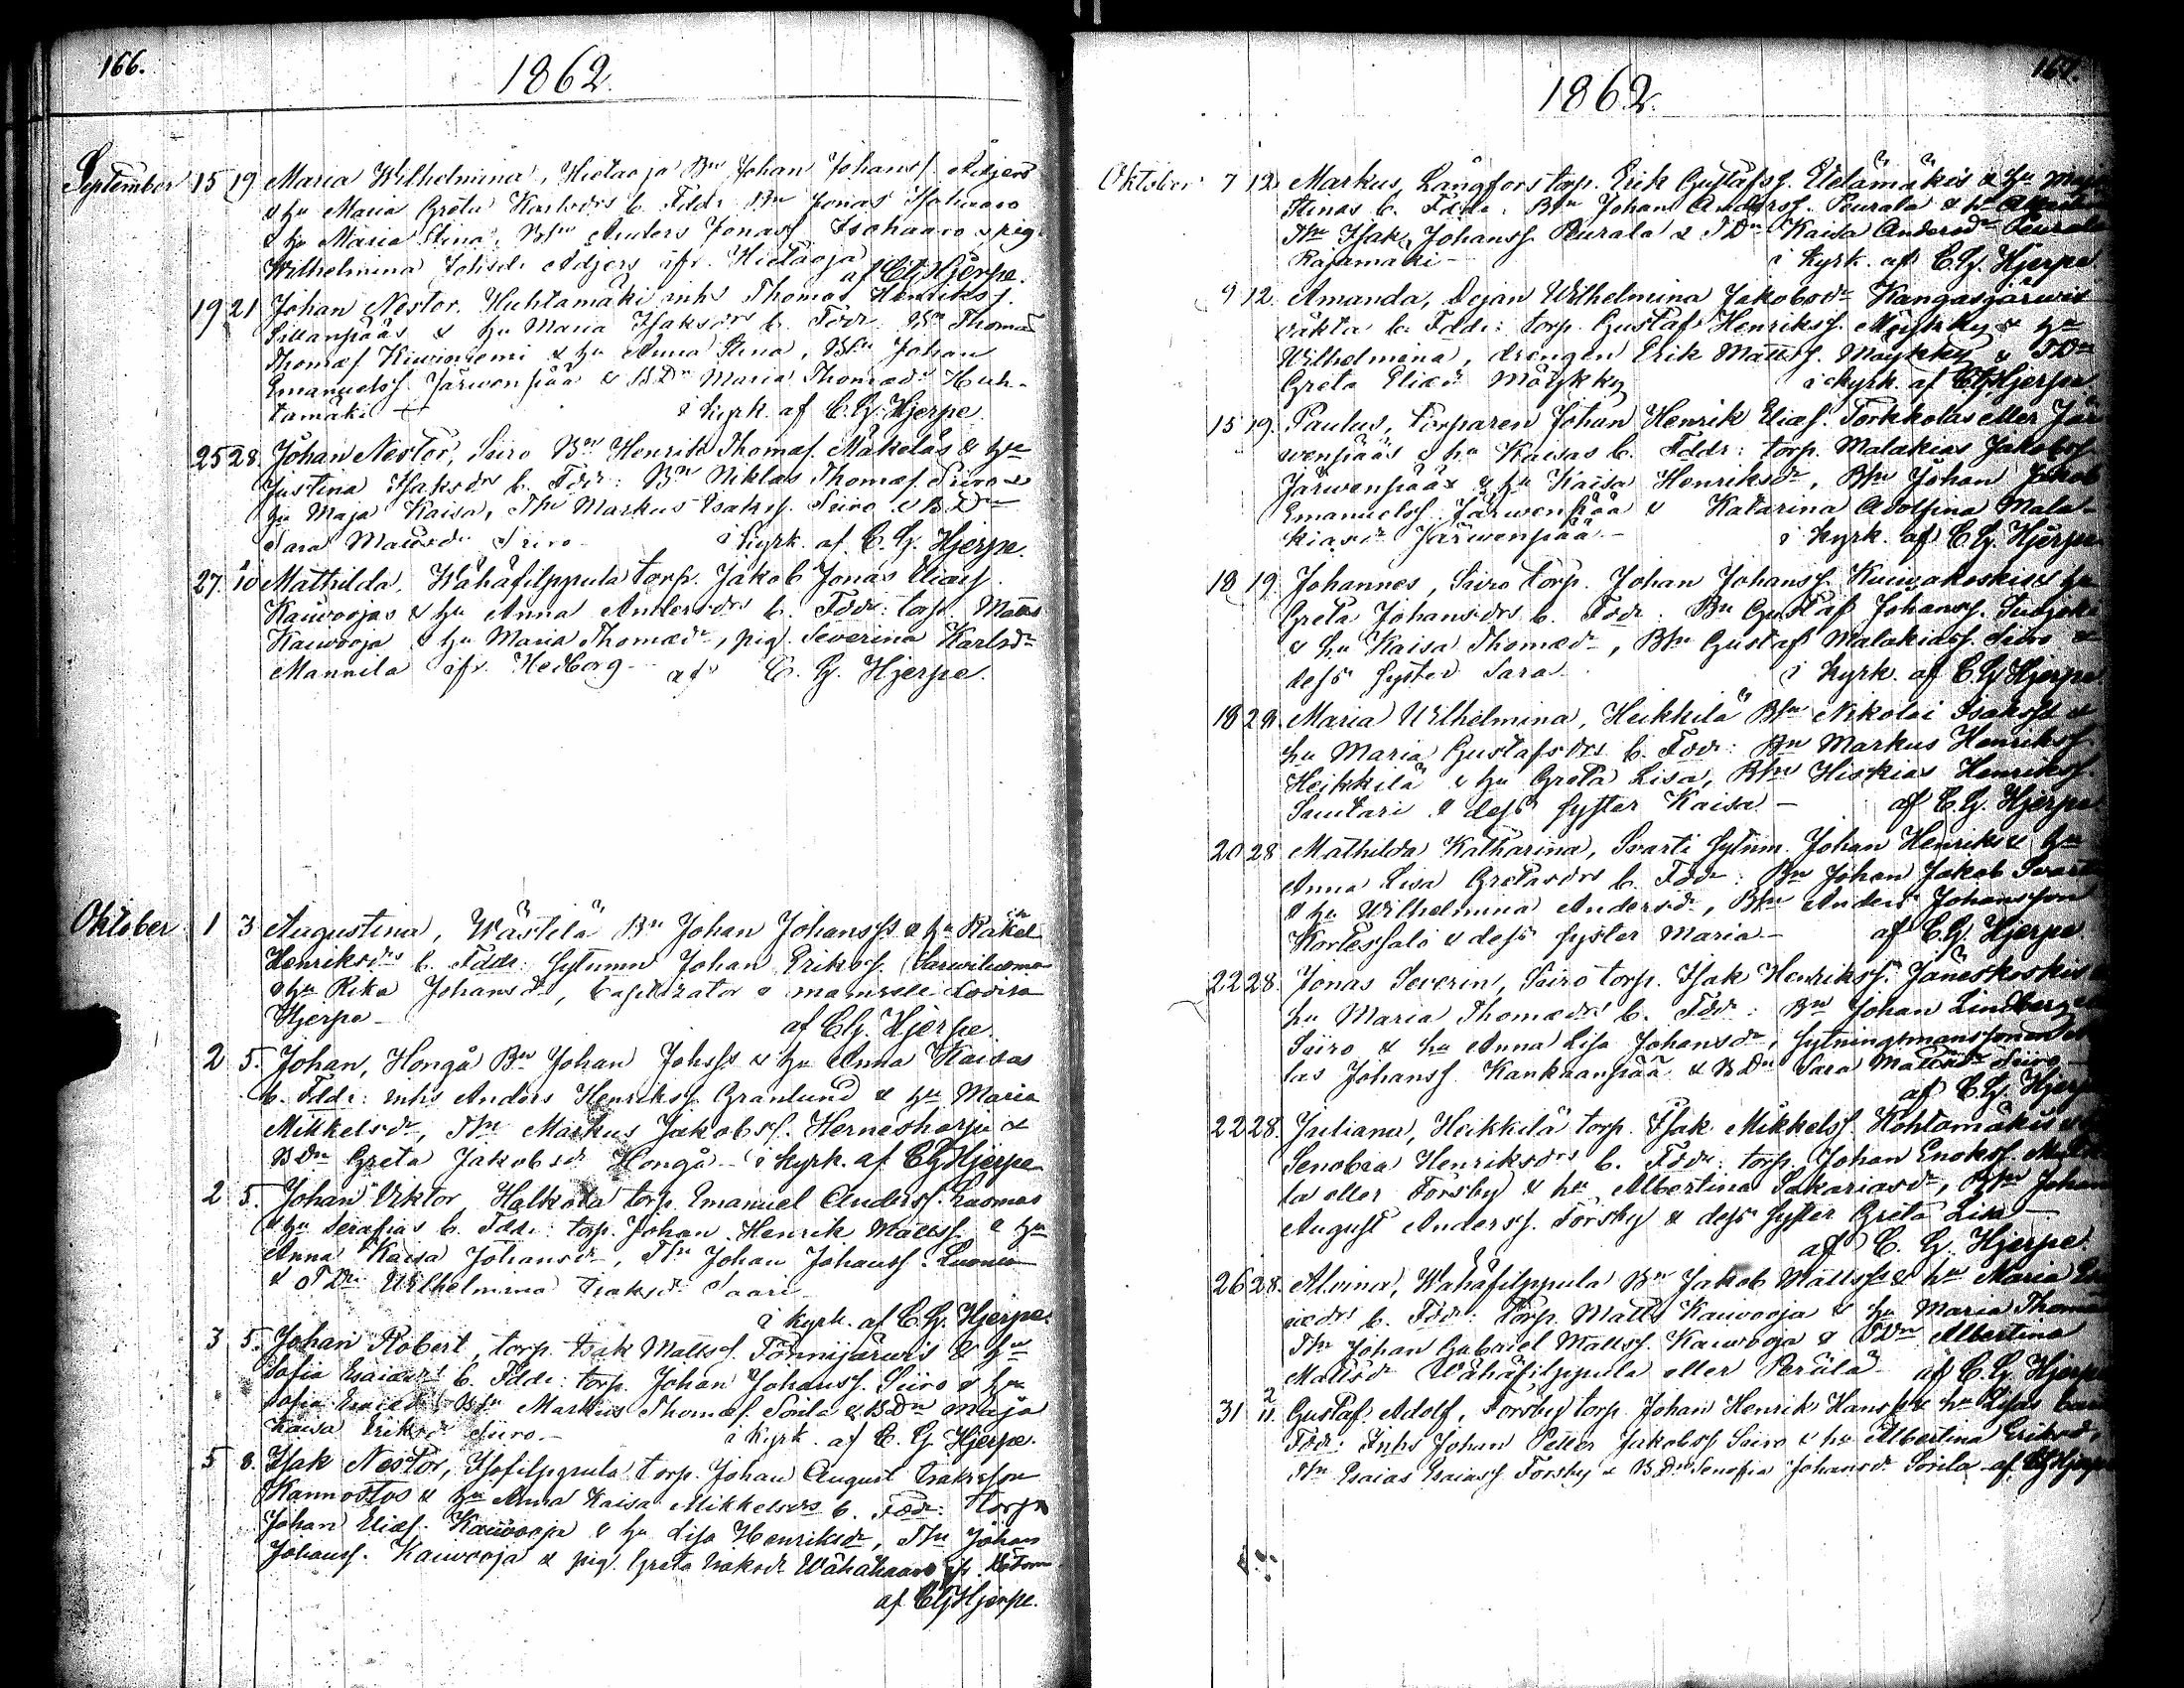 166.
1862.
September 15 19 Maria Wilhelmina, Hietaoja Bn Johan Johanss. Ädjers
& hu Maria Greta Karlsdrs b. Fddr Bn Jonas Isohaaro
& hu Maria Stina, Bsn Anders Jonass Isohaaro & pig.
Wilhelmina Johsdr Adjers ifr. Hietaoja
af C.G. Hjerpe.
19 21 Johan Nestor, Huhtamäki inhs Thomas Henrikss.
Sillanpääs & hu Maria Isaksdrs b. Fddr Bn Thomas
Thomass. Kiviniemi & hu Anna Stina, Bsn Johan
Emanuelss. Järwenpää & BDn Maria Thomasdr Huh-
tamäki i kyrk. af C.G. Hjerpe.
25 28. Johan Nestor, Siiro Bn Henrik Thomas. Mäkeläs & hu
Justina Isaksdrs b. Fddr: Bn Niklas Thomas. Siiro &
hu Maja Kaisa, Thn Markus Isakss. Siiro & BDn
Sara Matsdr Siiro i kyrk. af C.G. Hjerpe.
27. 10 Mathilda, Wähäfilppula torp. Jakob Jonas Eliass.
Kaiwoojas & hu Anna Andersdrs b. Fddr: torp. Matts
Kaiwooja & hu Maria Thomasdr, pig. Severina Karlsdr
Mannila ifr. Hedborg af C. G. Hjerpe.
Oktober 1 3 Augustina, Wästilä Bn Johan Johanss & hu Rakel
Henriksdrs b. Fddr: sytnmn Johan Erikss.
& hu Rika Johansdr, & mamsell Lovisa
Hjerpe af C.G. Hjerpe.
2 5. Johan, Hongå Bn Johan Johss & hu Anna Kaisas
b. Fddr: inhs Anders Henrikss. Granlund & hu Maria
Mikkelsdr, Thn Markus Jakobss. Hernesharju &
BDn Greta Jakobsdr Hongå i kyrk. af C.G. Hjerpe
2 5. Johan Viktor, Halkola torp. Emanuel Anderss. Luomas
& hu Serafias b. Fddr: torp. Johan Henrik Mattss. & hu
Anna Kaisa Johansdr, Thn Johan Johanss. Luoma
& TDn Wilhelmina Isaksdr Saari
i kyrk. af C.G. Hjerpe.
3 5. Johan Robert, torp. Isak Mattss. Tönnijärwis & hu
Sofia Esaiasdrs b. Fddr: torp. Johan Johanss. Siiro & hu
Sofia Esaiedr, Bsn Markus Thomas. Sorila & BDn Maja
Kaisa Eriksdr Siiro. i kyrk. af C. G. Hjerpe.
5 8. Isak Nestor, Isofilppula torp. Johan August Isaksson
Kannostos & hu Anna Kaisa Mikkelsdrs b. Fddr: torp.
Johan Eliass. Kaiwooja & hu Lisa Henriksdr, Thn Johan
Johanss. Kaiwooja & pig. Greta Isaksdr Wähähaaro ifr.
af C.G. Hjerpe.
167.
1862.
Oktober 7 12. Markus, Långfors torp. Erik Gustafss. Etelämäkis & hu Maja
Stinas b. Fddr. Bsn Johan Anderss. Peurala & hu
Thn Isak Johanss. Peurala & TDn Kaisa Andersdr Peurala
Rajamäki i kyrk. af C.G. Hjerpe
9 12. Amanda, Dejan Wilhelmina Jakobsdr Kangasjärwis
oäkta b. Fddr: torp. Gustaf Henrikss. Mäykky & hu
Wilhelmina, drengen Erik Mattss. Mäykky & TDn
Greta Eliedr Mäykky i kyrk. af C.G. Hjerpe
15 19. Paulus, torparen Johan Henrik Eliass. Torkkolas eller Jär
wenpääs & hu Kaisas b. Fddr: torp. Malakias Jakobss.
Järwenpääs & hu Kaisa Henriksdr, Bsn Johan Jakob
Emanuelss. Järwenpää & Katarina Adolfina Mala-
kiasdr Järwenpää i kyrk. af C.G. Hjerpe
18 19. Johannes, Siiro torp. Johan Johanss. Kuiwakoskis & hu
Greta Johansdrs b. Fddr: Bn Gustaf Johanss.
& hu Kaisa Thomasdr, Bsn Gustaf Malakiass. Siiro &
dess syster Sara. i kyrk. af C.G. Hjerpe
18 28. Maria Wilhelmina, Heikkilä Bsn Nikolai Isakss &
hu Maria Gustafsdrs b. Fddr: Bn Markus Henrikss.
Heikkilä & hu Greta Lisa, Bsn Hiskias Henrikss.
Santari & dess syster Kaisa af C.G. Hjerpe
20 28 Mathilda Katharina, Svarti sytnm. Johan Henriks & hu
Anna Lisa Gretasdrs b. Fddr: Bn Johan Jakob Svarti
& hu Wilhelmina Andersdr, Bsn Anders Johansson
Kortessalo & dess syster Maria af C.G. Hjerpe
22 28. Jonas Severin, Siiro torp. Isak Henrikss. Jäneskoskis &
hu Maria Thomasdrs b. Fddr: Bn Johan Lindberg
Siiro & hu Anna Lisa Johansdr, sytningsmanssonen
las Johanss. Kankaanpää & BDn Sara Matsdr Siiro
af C.G. Hjerpe
22 28. Juliana, Heikkilä torp. Isak Mikkelss. Kohtamäkis &
Senobia Henriksdrs b. Fddr: torp. Johan Enokss.
la eller Forsby & hu Albertina Sakariasdr, Bsn Johan
August Anderss. Forsby & dess syster Greta Lisa
af C. G. Hjerpe.
26 28. Alvina, Wähäfilppula Bn Jakob Mattss & hu Maria
iædrs b. Fddr: torp. Matts Kaiwooja & hu Maria Thomas
Thn Johan Gabriel Mattss. Kaiwooja & TDn Albertina
Matsdr Wähäfilppula eller Perälä af C.G. Hjerpe
31 2/11 Gustaf Adolf, Forsby torp. Johan Henrik Hanss & hu Lisas barn
Fddr: Inhs Johan Petter Jakobss Siiro & hu Albertina Eriksd,
Thn Esaias Esaiass Forsby & BDn Senofia Johansdr Sorila af C.G. Hjerpe